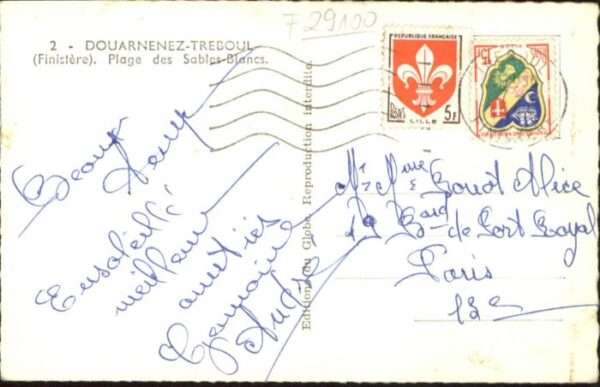 F 29100
2 - DOUARNENEZ-TREBOUL
(Finistère). Plage des Sables-Blancs.
Beau temps
Ensoleillé
meilleures
amitiés
Germaine
André
Editions du Globe. Reproduction interdite.
REPUBLIQUE FRANÇAISE
5F
LILLE
15F
Mr Mme Bonot Alice
19 Bard de Port Royal
Paris
13e